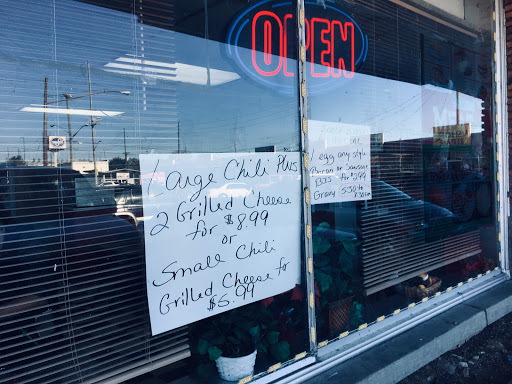 OPEN
Large Chili Plus
2 Grilled Cheese
for $8.99
or
Small Chili
Grilled Cheese for
$6.99
1 egg any style
Bacon or Sausage
Gravy 5:30 to